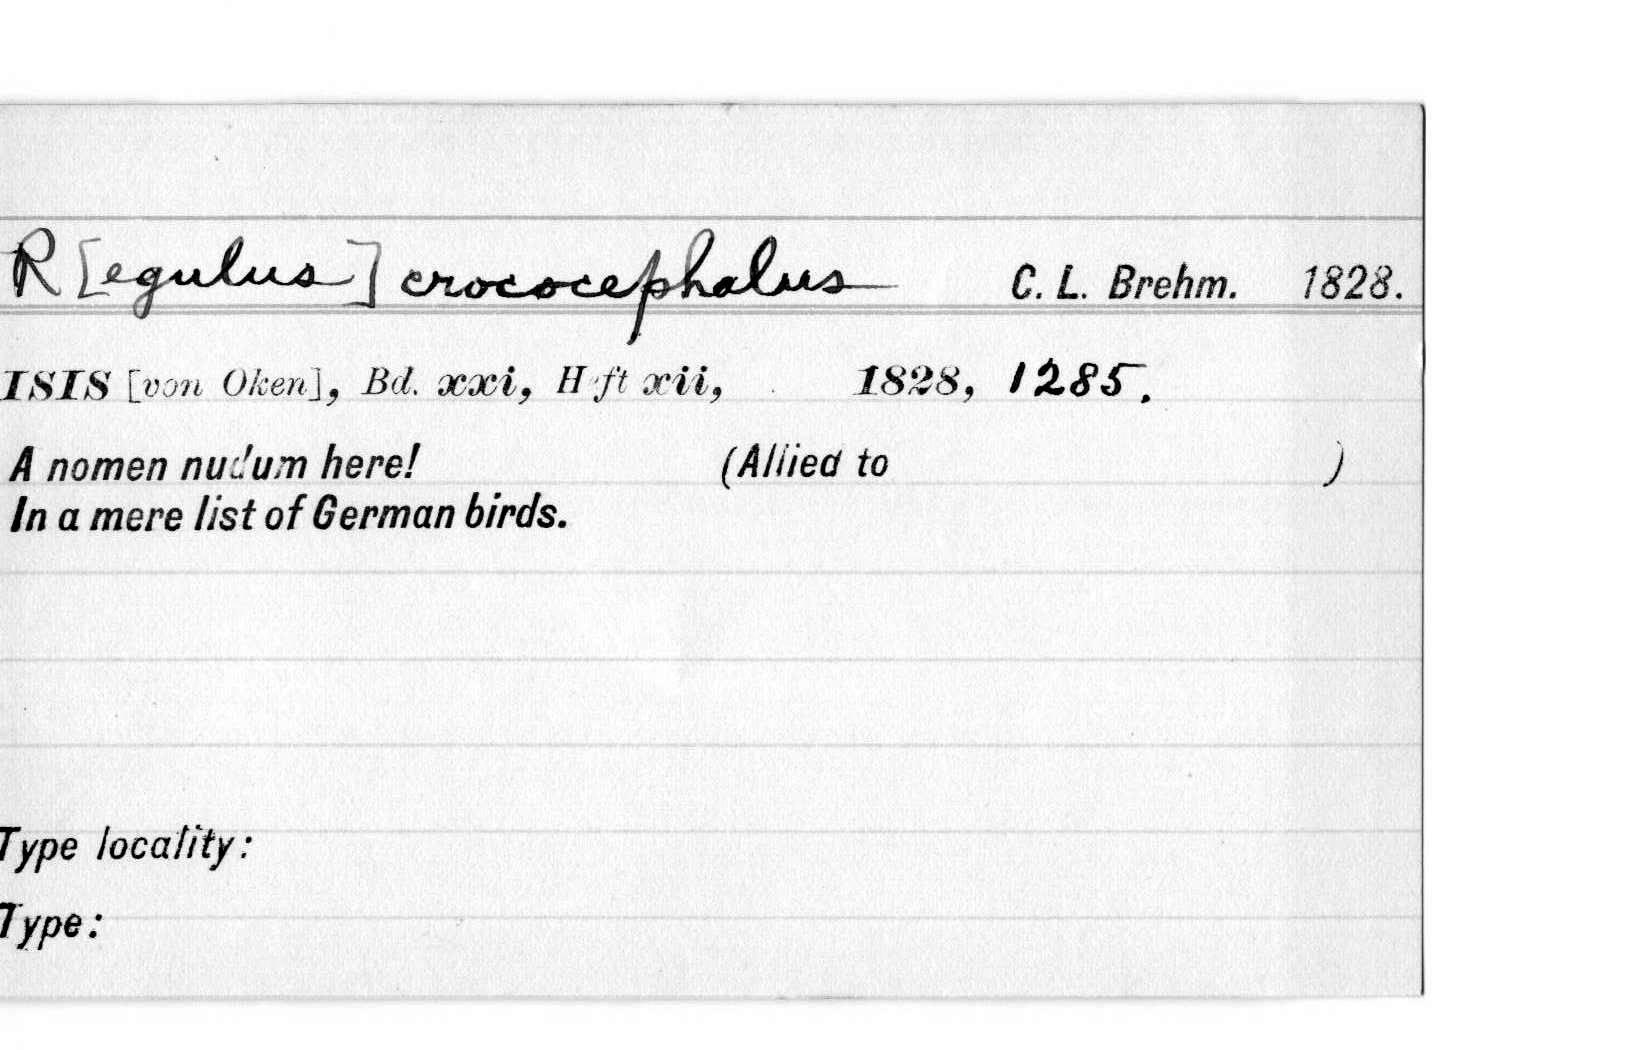 R[egulus] crococephalus C. L. Brehm. 1828.
ISIS [von Oken], Bd. xxi, Heft xii, 1828, 1285.
A nomen nudum here! (Allied to )
In a mere list of German birds.
Type locality:
Type: